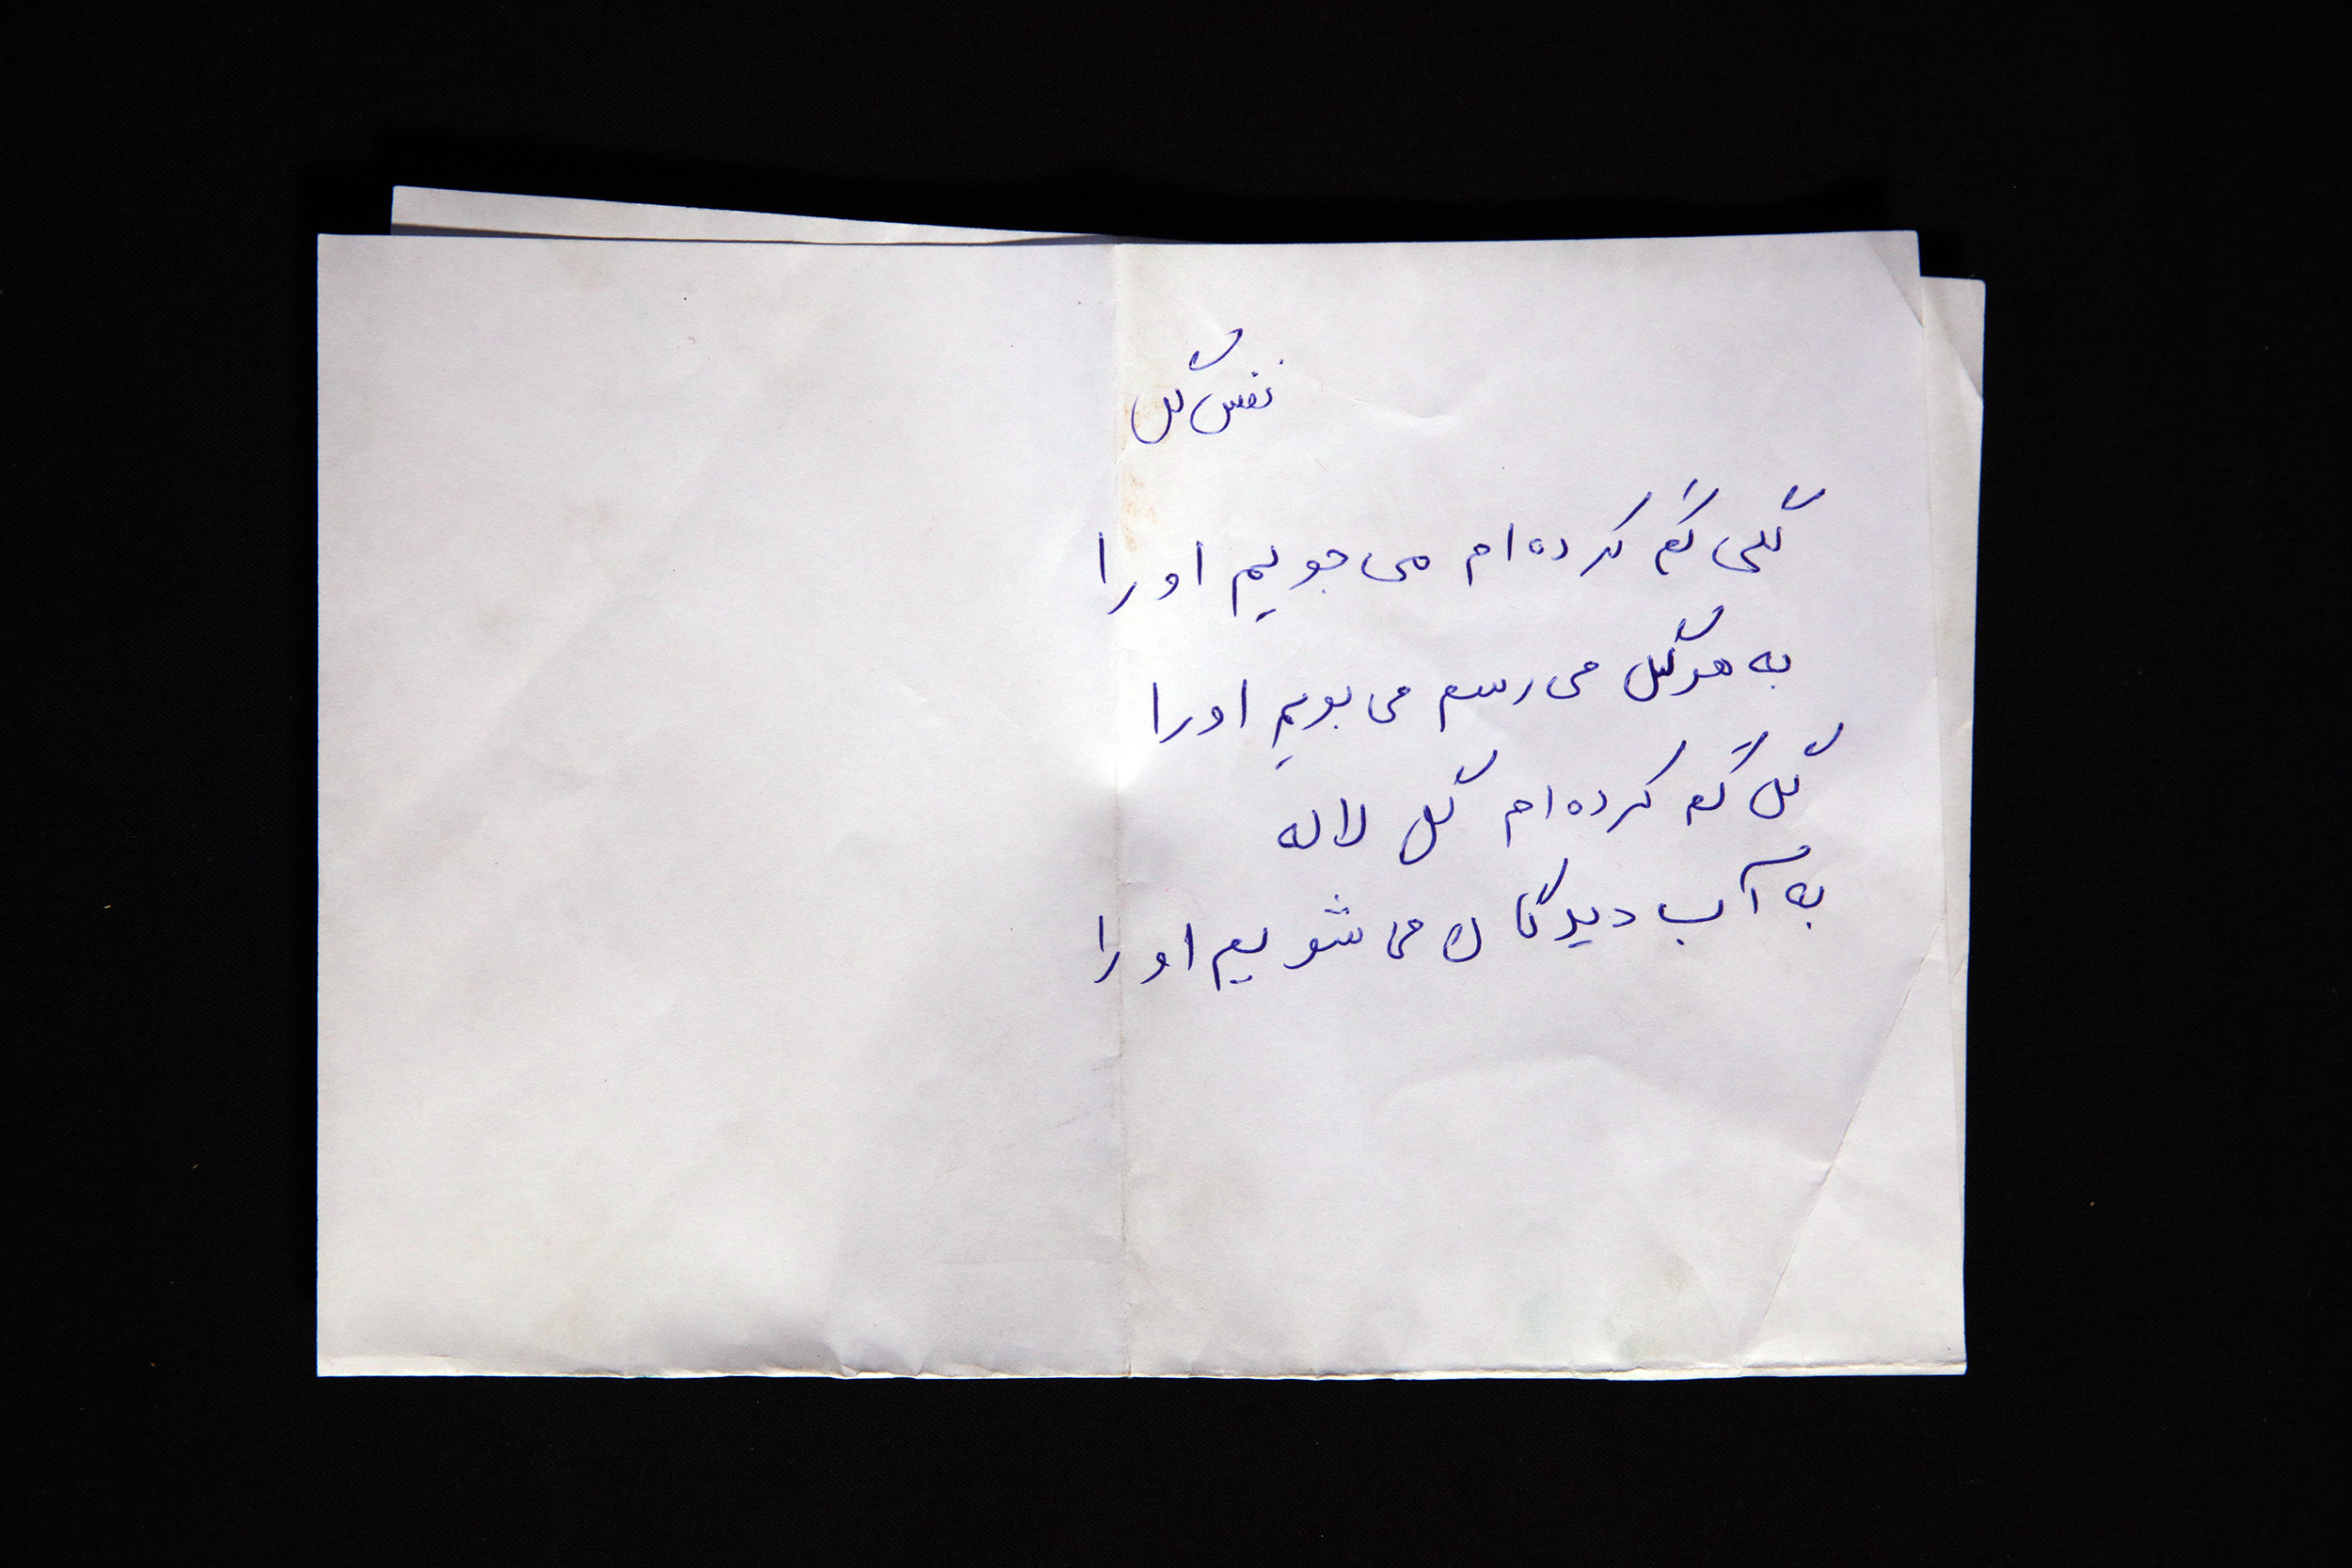 نفس گل
گلی گم کرده ام می جویم اورا
به هر گل می رسم می بویم اورا
گل گم کرده ام گل لاله
به آب دیدگان می شویم اورا